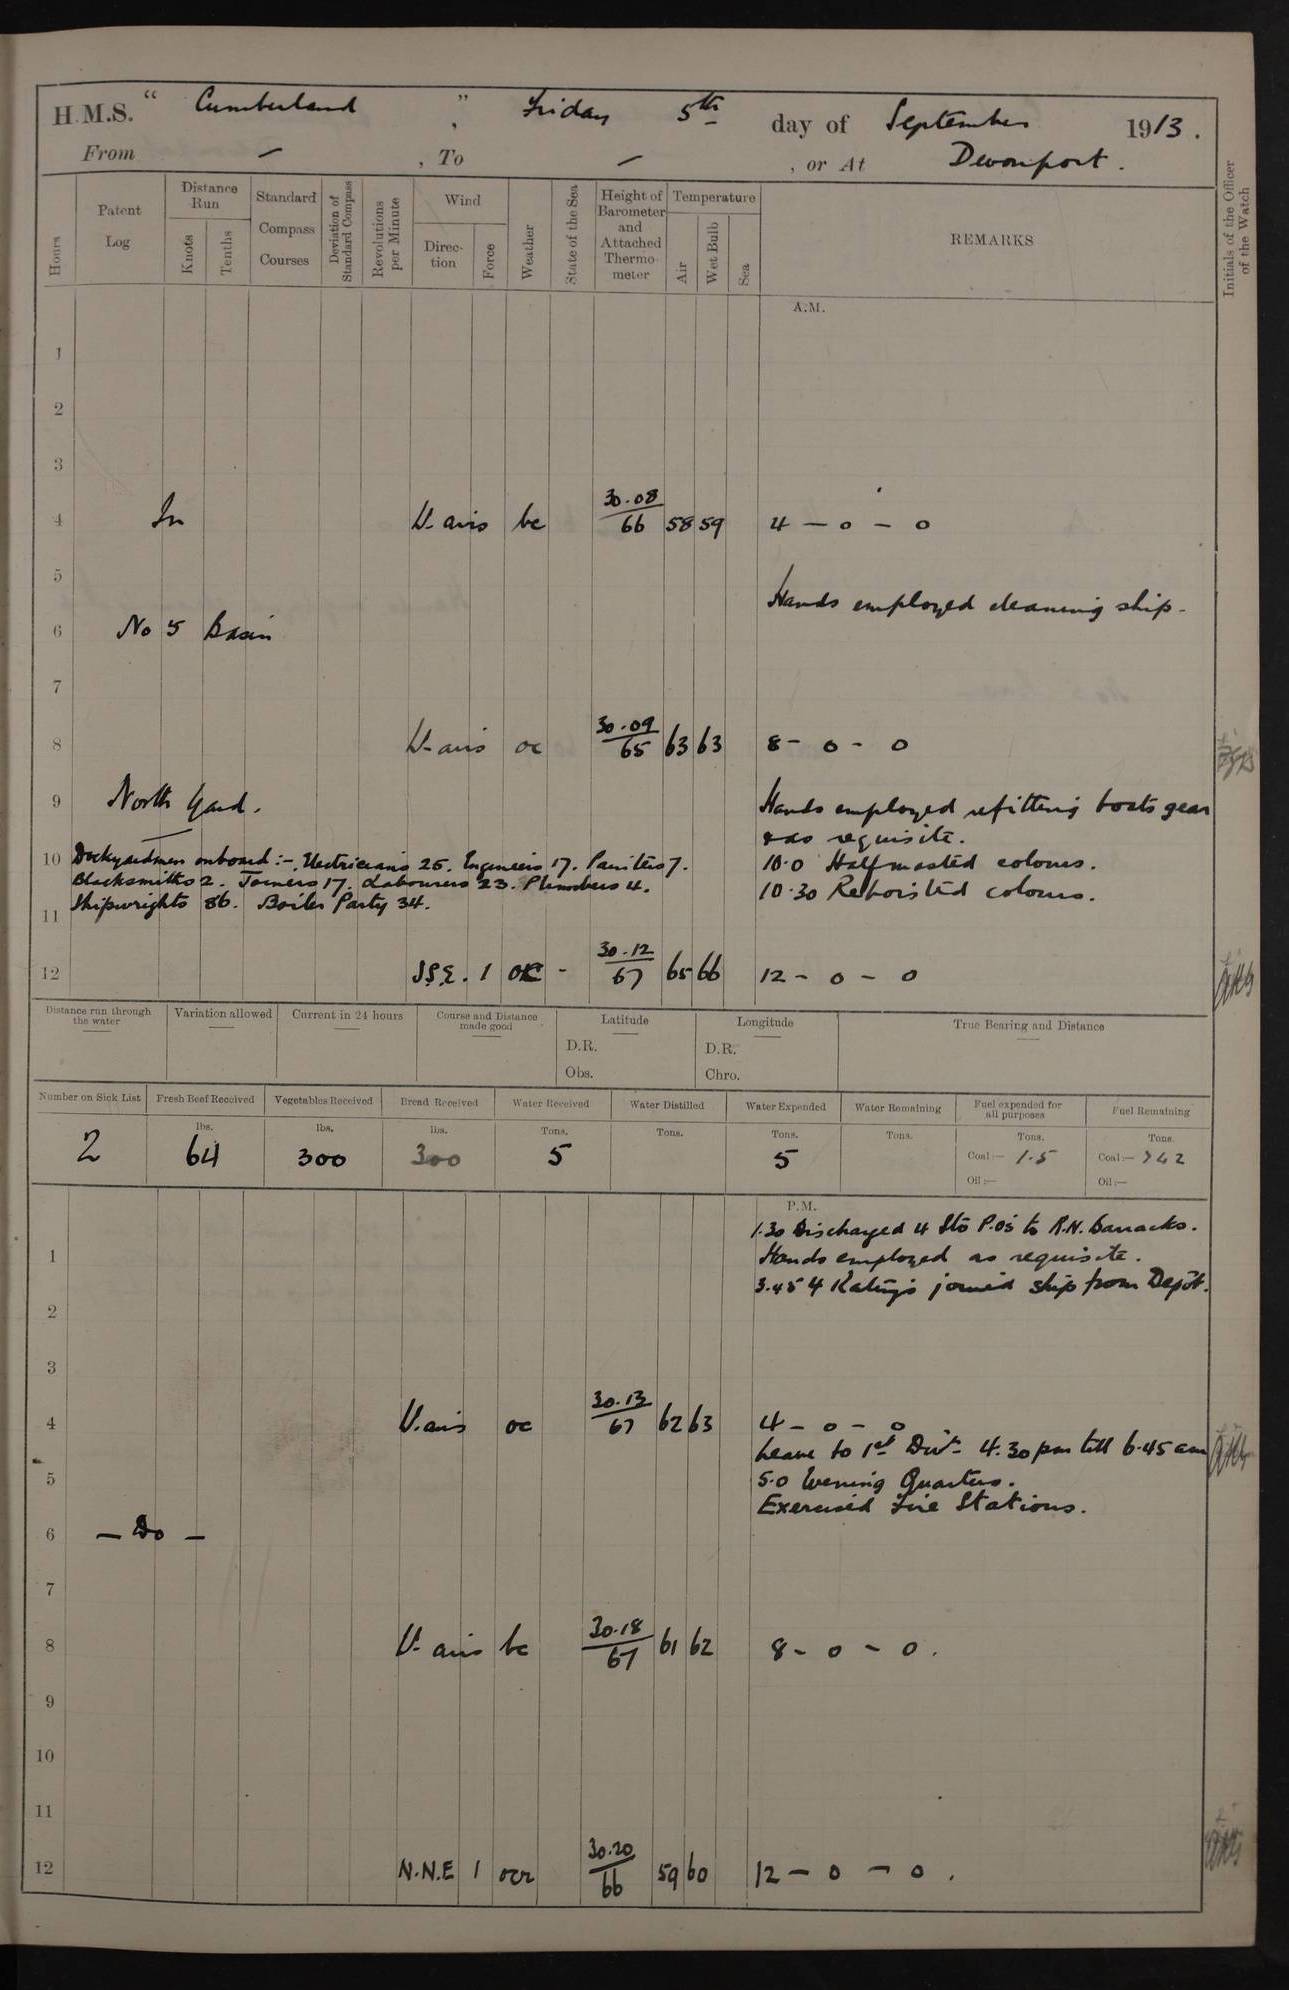 H.M.S. " Cumberland " , Friday 5th day of September 1913.
From — , To — , or At Devonport.
Hours
Patent Log
Distance Run
Knots
Tenths
Standard Compass Courses
Deviation of Standard Compass
Revolutions per Minute
Wind
Direction
Force
Weather
State of the Sea
Height of Barometer and Attached Thermometer
Temperature
Air
Wet Bulb
Sea
REMARKS
Initials of the Officer of the Watch
A.M.
1
2
3
4 In V. airs bc 30.08/66 58 59 4 – 0 – 0
5
Hands employed cleaning ship.
6 No 5 Basin
7
8 V. airs oc 30.09/65 63 63 8 – 0 – 0
9 North Yard. Hands employed refitting boats gear
& as requisite.
10 Dockyardmen onboard:– Electricians 25. Engineers 17. Painters 7. 10.0 Halfmasted colours.
Blacksmiths 2. Joiners 17. Labourers 23. Plumbers 4. 10.30 Rehoisted colours.
11 Shipwrights 86. Boiler Party 34.
12 S.S.E. 1 oc - 30.12/67 65 66 12 – 0 – 0
Distance run through the water
Variation allowed
Current in 24 hours
Course and Distance made good
Latitude
D.R.
Obs.
Longitude
D.R.
Chro.
True Bearing and Distance
Number on Sick List
2
Fresh Beef Received
lbs.
64
Vegetables Received
lbs.
300
Bread Received
lbs.
300
Water Received
Tons.
5
Water Distilled
Tons.
Water Expended
Tons.
5
Water Remaining
Tons.
Fuel expended for all purposes
Tons.
Coal:— 1.5
Oil:—
Fuel Remaining
Tons.
Coal:—
Oil:—
P.M.
1.30 Discharged 4 Sto P.Os to R.N. Barracks.
1 Hands employed as requisite.
3.45 4 Ratings joined ship from Depôt.
2
3
4 V. airs oc 30.13/67 62 63 4 – 0 – 0
Leave to 1st Divn. 4.30 pm till 6.45 am
5 5.0 Evening Quarters.
Exercised Fire Stations.
6 — Do —
7
8 V. airs bc 30.18/67 61 62 8 – 0 – 0.
9
10
11
12 N.N.E 1 ocr 30.20/66 59 60 12 – 0 – 0.